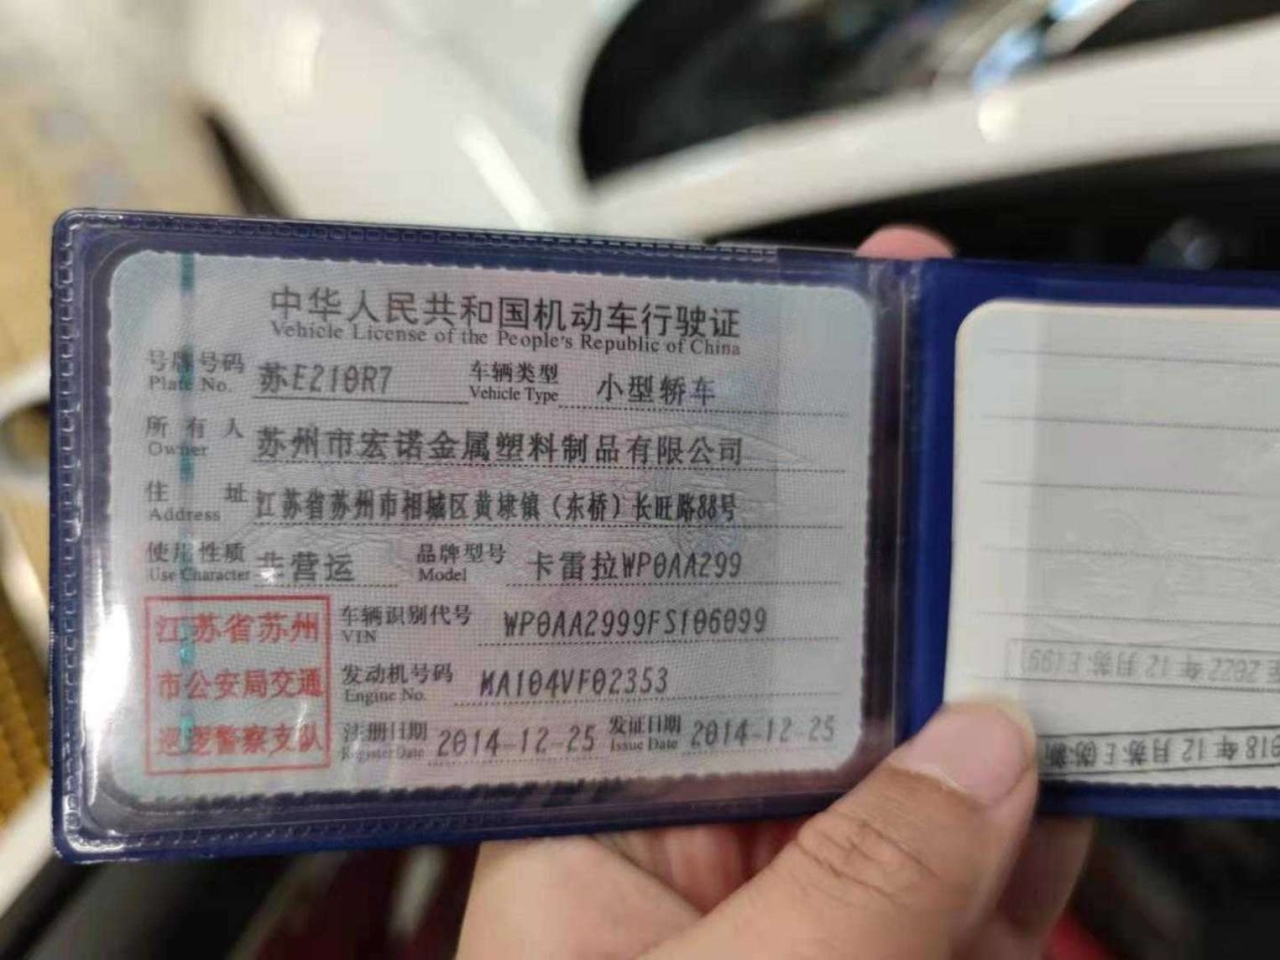 中华人民共和国机动车行驶证
Vehicle License of the People's Republic of China
号牌号码 苏E210R7 车辆类型 小型轿车
Plate No. Vehicle Type
所有人 苏州市宏诺金属塑料制品有限公司
Owner
住址 江苏省苏州市相城区黄埭镇（东桥）长旺路88号
Address
使用性质 非营运 品牌型号 卡雷拉WP0AA299
Use Character Model
江苏省苏州
市公安局交通
巡逻警察支队
车辆识别代号 WP0AA2999FS106099
VIN
发动机号码 MA104VF02353
Engine No.
注册日期 2014-12-25 发证日期 2014-12-25
Register Date Issue Date
2022年12月苏E
018年12月苏E